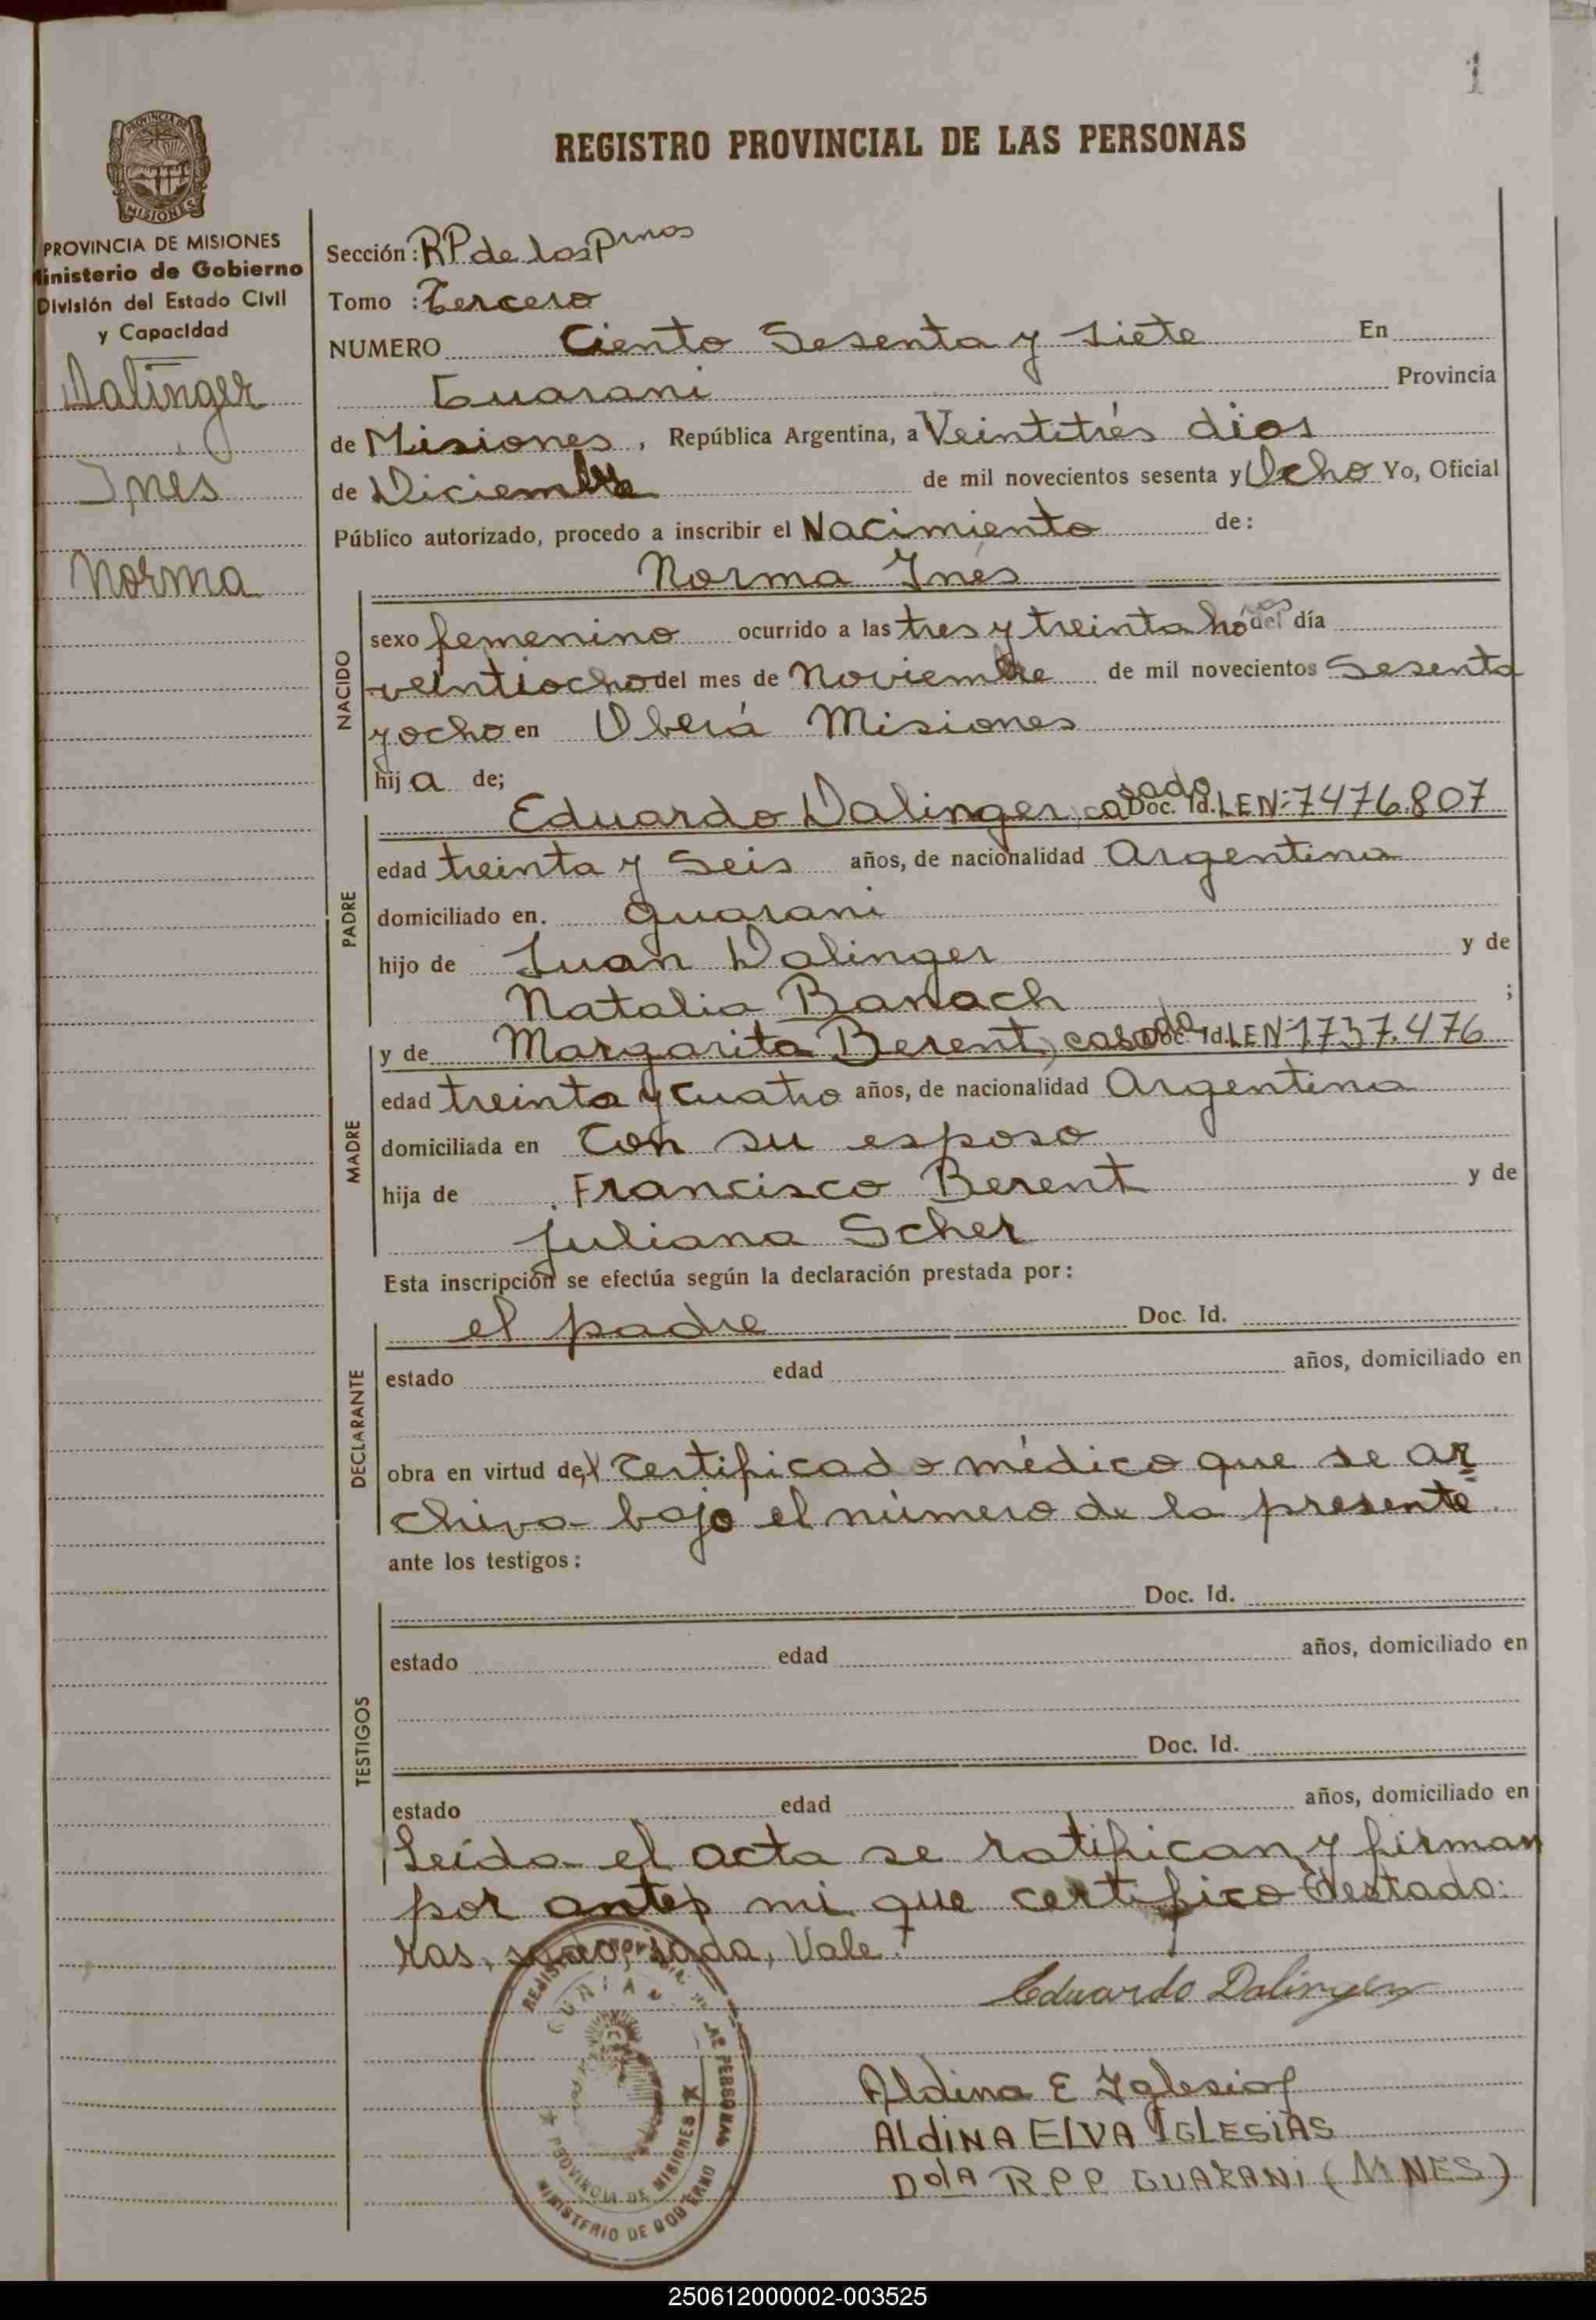 1
REGISTRO PROVINCIAL DE LAS PERSONAS
PROVINCIA DE
MISIONES
PROVINCIA DE MISIONES
Ministerio de Gobierno
División del Estado Civil
y Capacidad
Dalinger
Inés
Norma
Sección: RP de los Pinos
Tomo : Tercero
NUMERO Ciento Sesenta y Siete En
Guarani Provincia
de Misiones, República Argentina, a Veintitrés dias
de Diciembre de mil novecientos sesenta y Ocho Yo, Oficial
Público autorizado, procedo a inscribir el Nacimiento de:
Norma Inés
NACIDO
sexo femenino ocurrido a las tres y treinta horas del día
veintiocho del mes de Noviembre de mil novecientos Sesenta
y ocho en Oberá Misiones
hija de;
PADRE
Eduardo Dalinger, casado Doc. Id. LEN-7476.807
edad treinta y Seis años, de nacionalidad Argentina
domiciliado en. Guarani
hijo de Juan Dalinger y de
Natalia Banach ;
MADRE
y de Margarita Berent, casada Doc. Id. LEN-1737.476
edad treinta y cuatro años, de nacionalidad Argentina
domiciliada en Con su esposo
hija de Francisco Berent y de
Juliana Scher
Esta inscripción se efectúa según la declaración prestada por:
DECLARANTE
el padre Doc. Id.
estado edad años, domiciliado en
obra en virtud del Certificado médico que se ar
chiva bajo el número de la presente.
ante los testigos:
TESTIGOS
Doc. Id.
estado edad años, domiciliado en
Doc. Id.
estado edad años, domiciliado en
Leída el acta se ratifican y firman
por ante mi que certifico Testado:
ras, sado, sada, Vale.
Eduardo Dalinger
Aldina E Iglesias
ALdiNA ELVA IGLESiAS
DdlA R.P.P. GUARANi (MNES)
PERSONAS
PROVINCIA DE MISIONES
MINISTERIO DE GOBIERNO
250612000002-003525